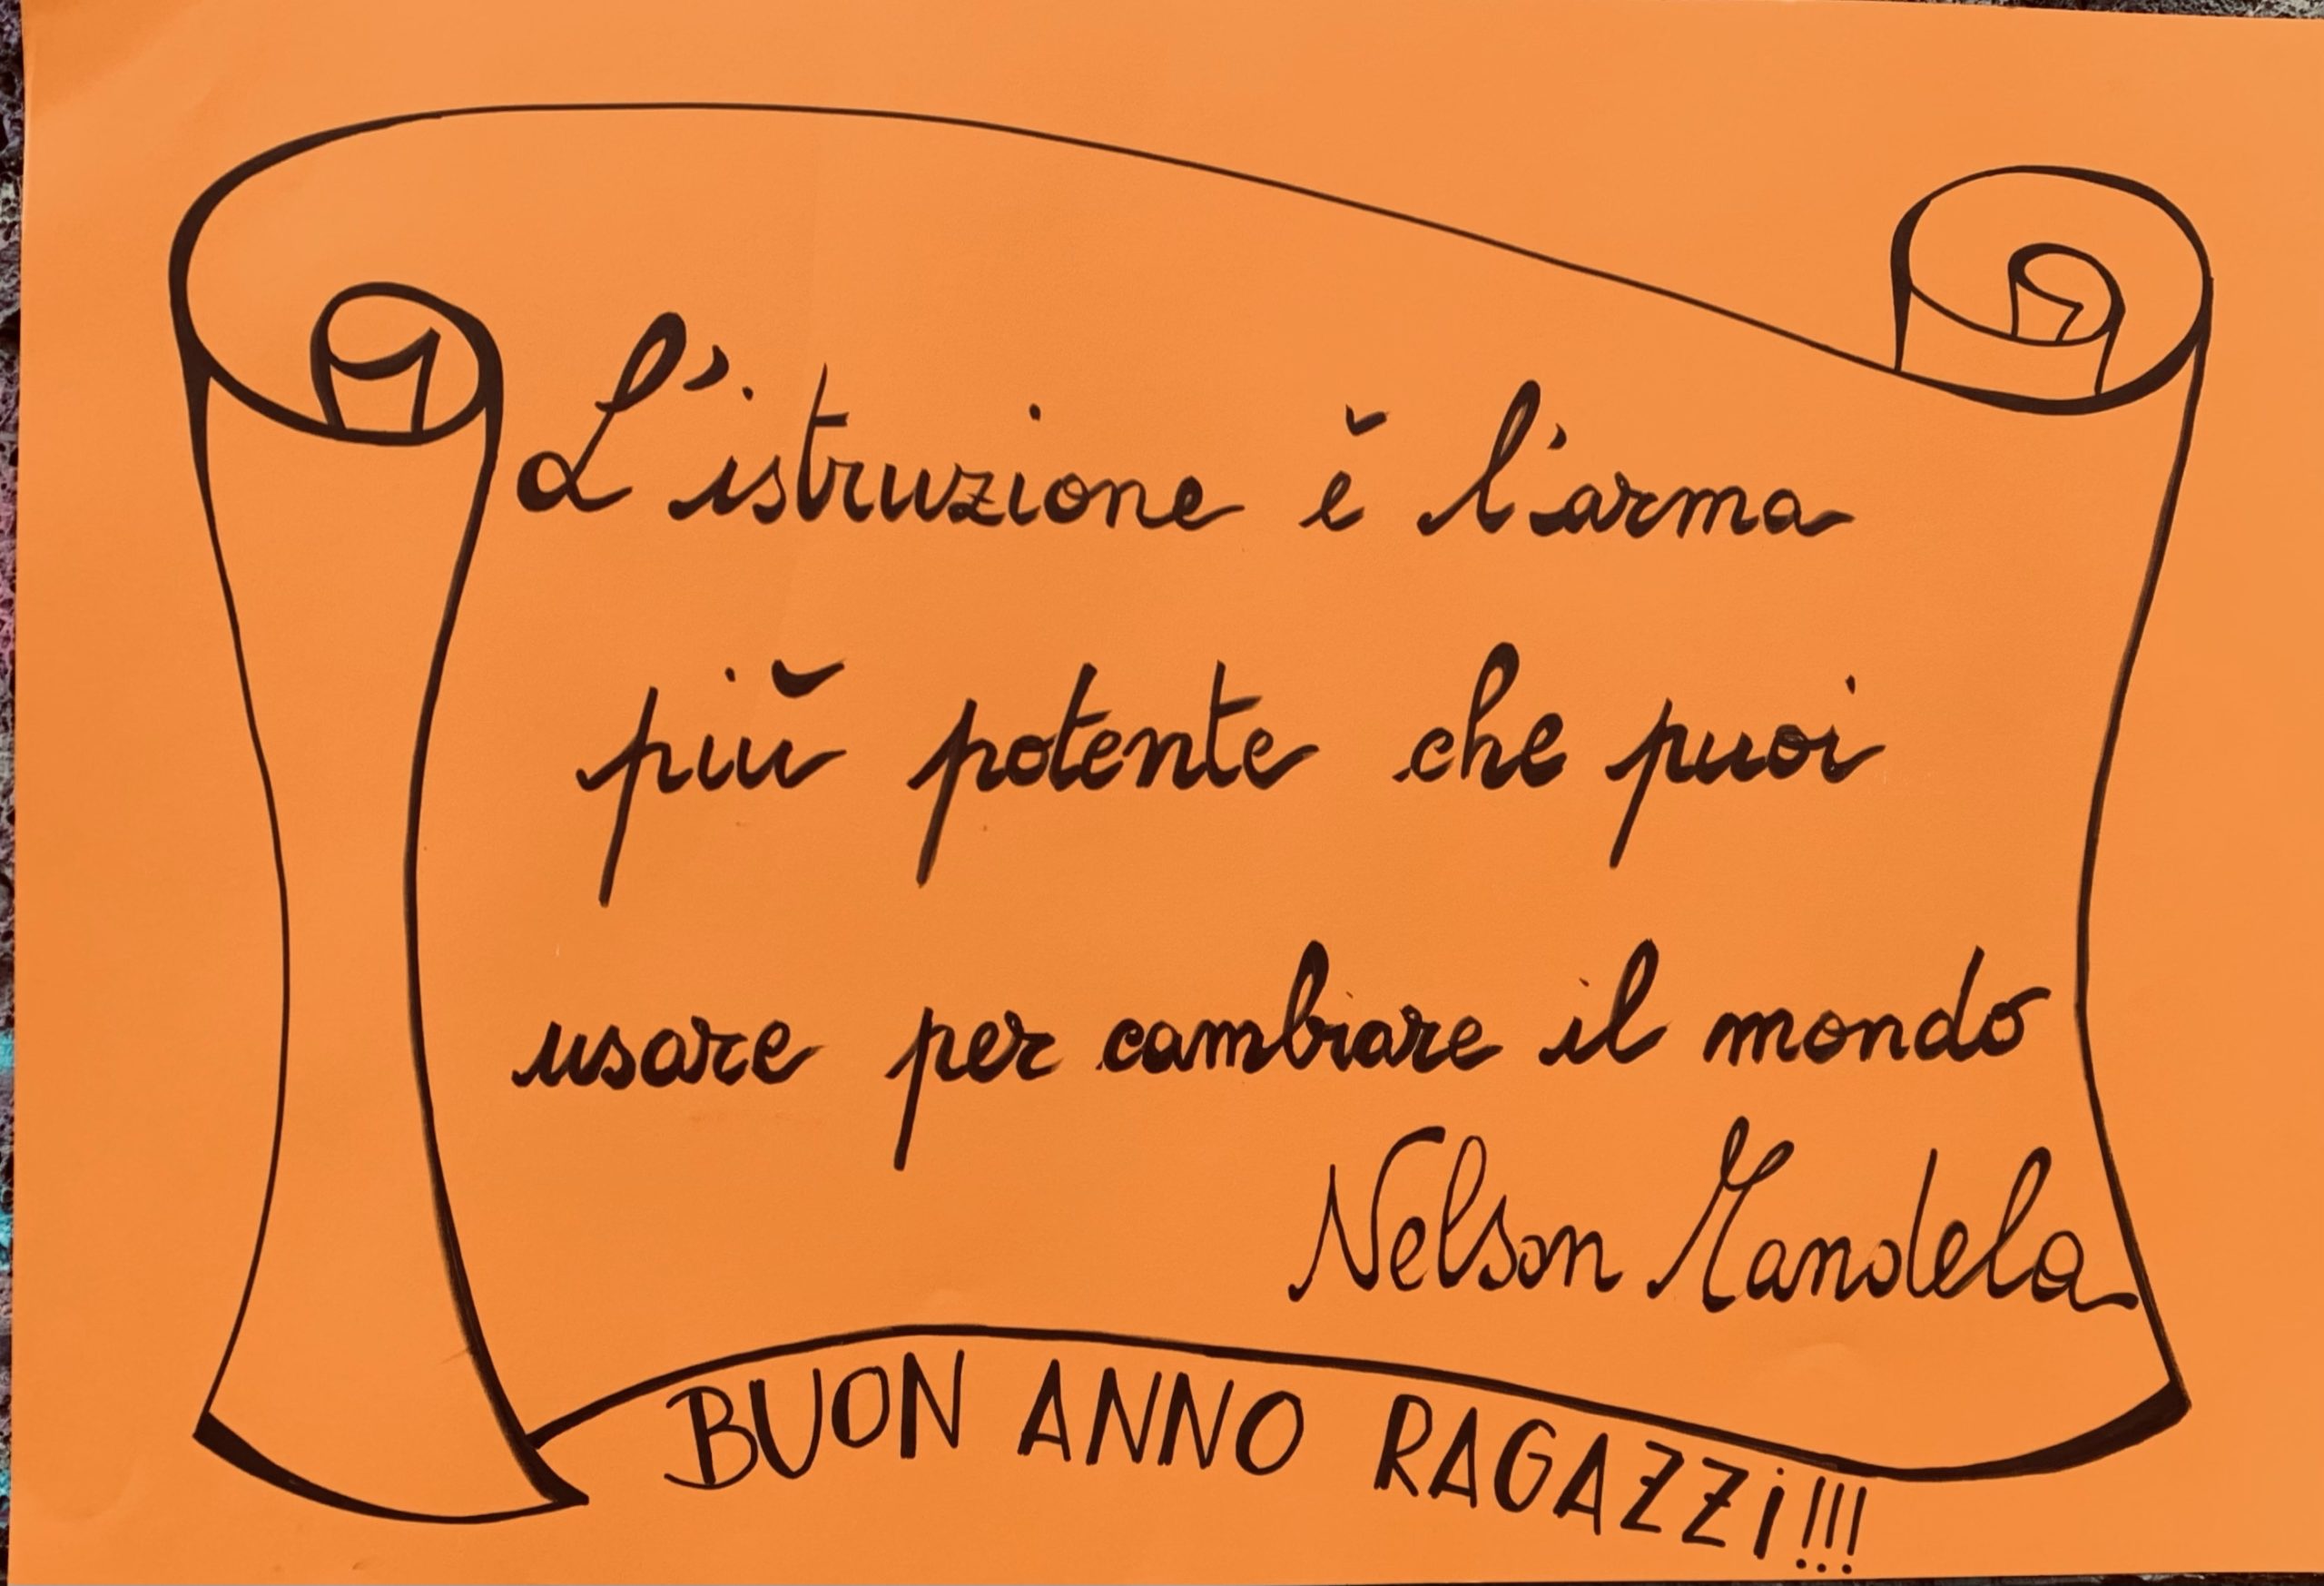 L'istruzione è l'arma
più potente che puoi
usare per cambiare il mondo
Nelson Mandela
BUON ANNO RAGAZZi!!!